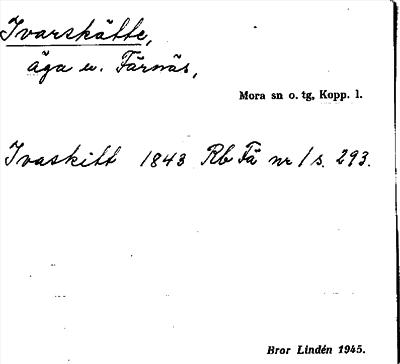 Ivarskätte,
äga u. Färnäs,
Mora sn o. tg, Kopp. l.
Ivaskitt 1843 Rb Fä nr 1 s. 293.
Bror Lindén 1945.